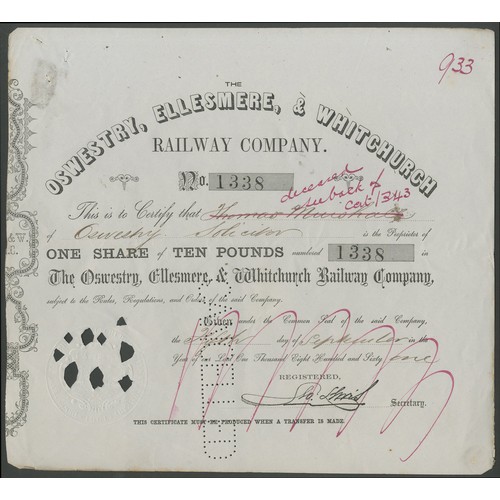 933
THE
OSWESTRY, ELLESMERE, & WHITCHURCH
RAILWAY COMPANY.
No. 1338
deceased
see back of
Cat. 1343
This is to Certify that Thomas Minshall
of Oswestry Solicitor is the Proprietor of
ONE SHARE of TEN POUNDS numbered 1338 in
The Oswestry, Ellesmere, & Whitchurch Railway Company,
subject to the Rules, Regulations, and Orders of the said Company.
Given under the Common Seal of the said Company,
the day of September in the
Year of our Lord One Thousand Eight Hundred and Sixty one
REGISTERED,
Geo. Lewis
Secretary.
THIS CERTIFICATE MUST BE PRODUCED WHEN A TRANSFER IS MADE.